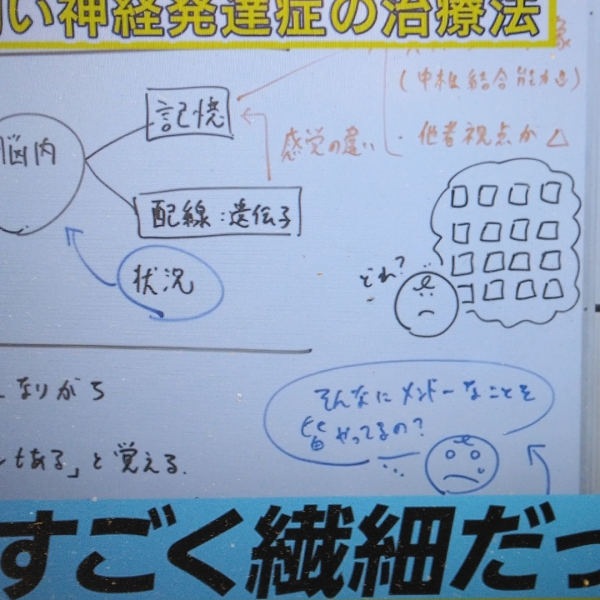 い神経発達症の治療法
像
(中枢結合能力
記憶
感覚の違い
・他者視点が△
脳内
配線:遺伝子
状況
どれ?
なりがち
そんなにメンドーなことを
皆やってるの?
もある」と覚える.
すごく繊細だっ